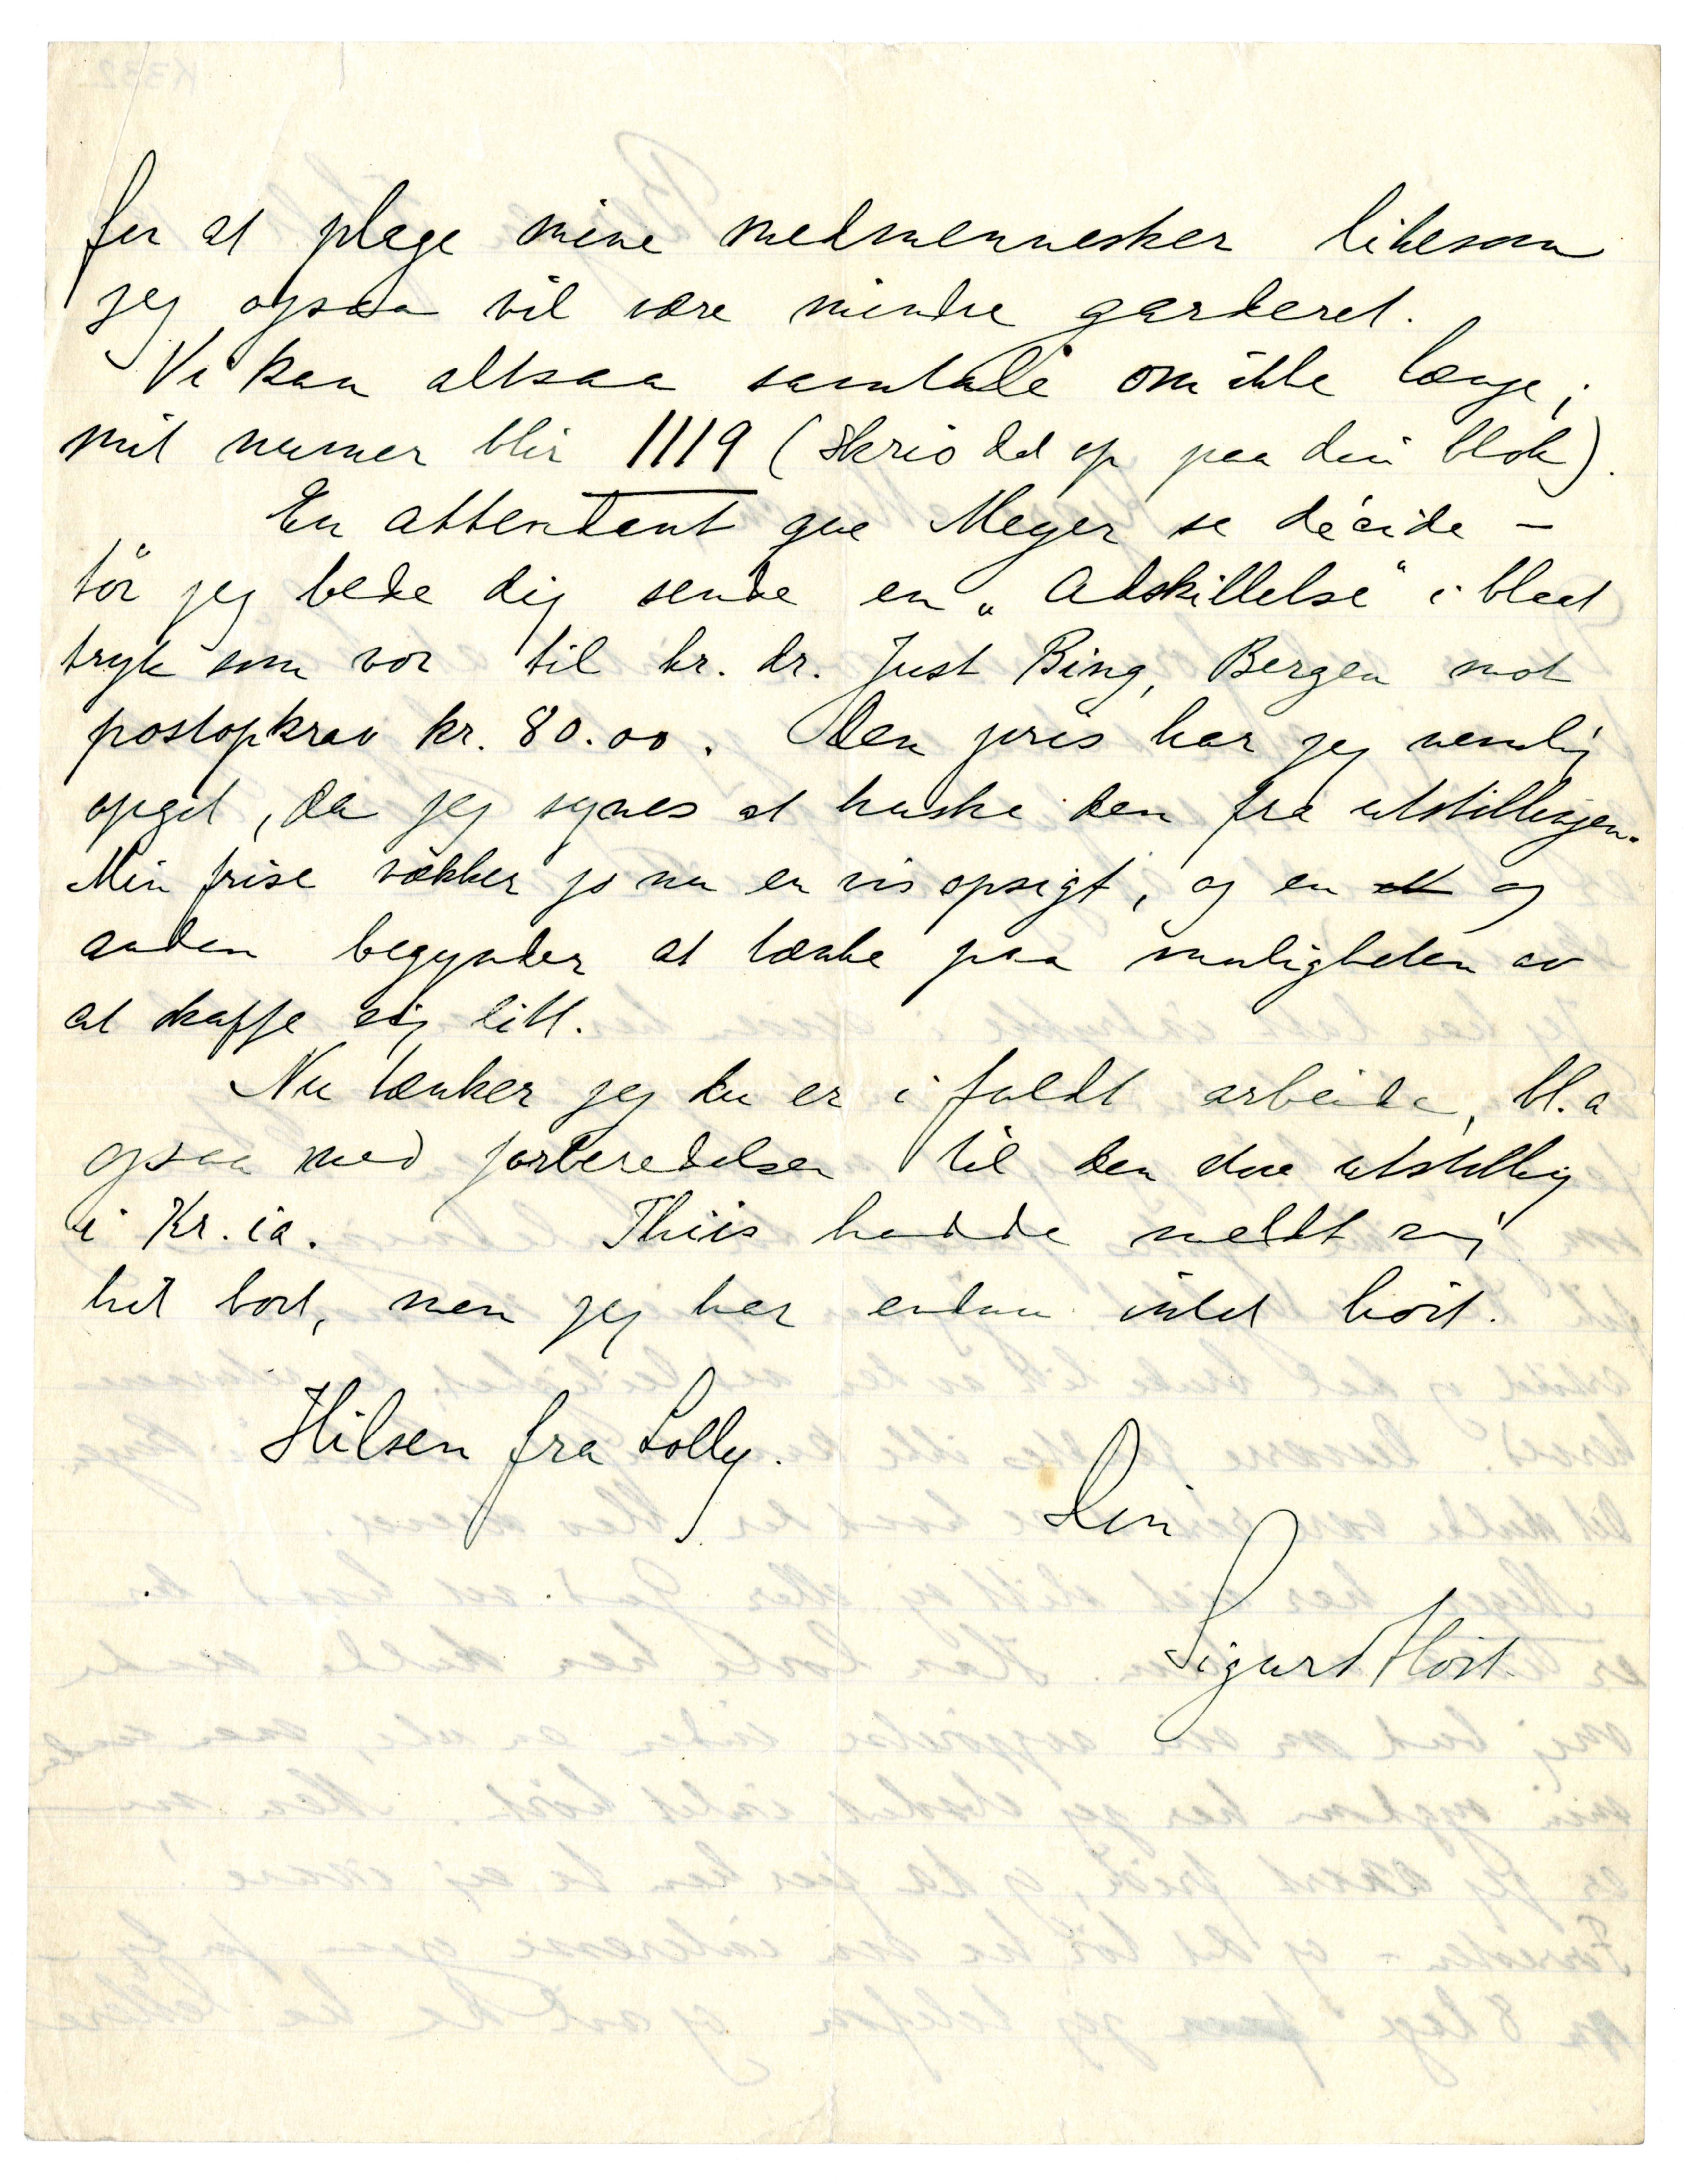 for at plage mine medmennesker likesom
jeg ogsaa vil være mindre garderet.
Vi kan altsaa samtale om ikke længe;
mit numer blir 1119 (skriv det op paa din blok).
En attendant que Meyer se décide –
tör jeg bede dig sende en „Adskillelse" i blaat
tryk som vor til hr. dr. Just Bing, Bergen mot
postopkrav kr. 80.00. Den pris har jeg nemlig
opgit, da jeg synes at huske den fra utstillingen.
Min frise vækker jo nu en vis opsigt, og en og
anden begynder at tænke paa muligheden av
at skaffe sig litt.
Nu tænker jeg du er i fuldt arbeide, bl.a
ogsaa med forberedelsen til den store utstilling
i Kr.ia. Thiis hadde meldt sig
hit bort, men jeg har endnu intet hört.
Hilsen fra Lolly.
Din
Sigurd Höst.